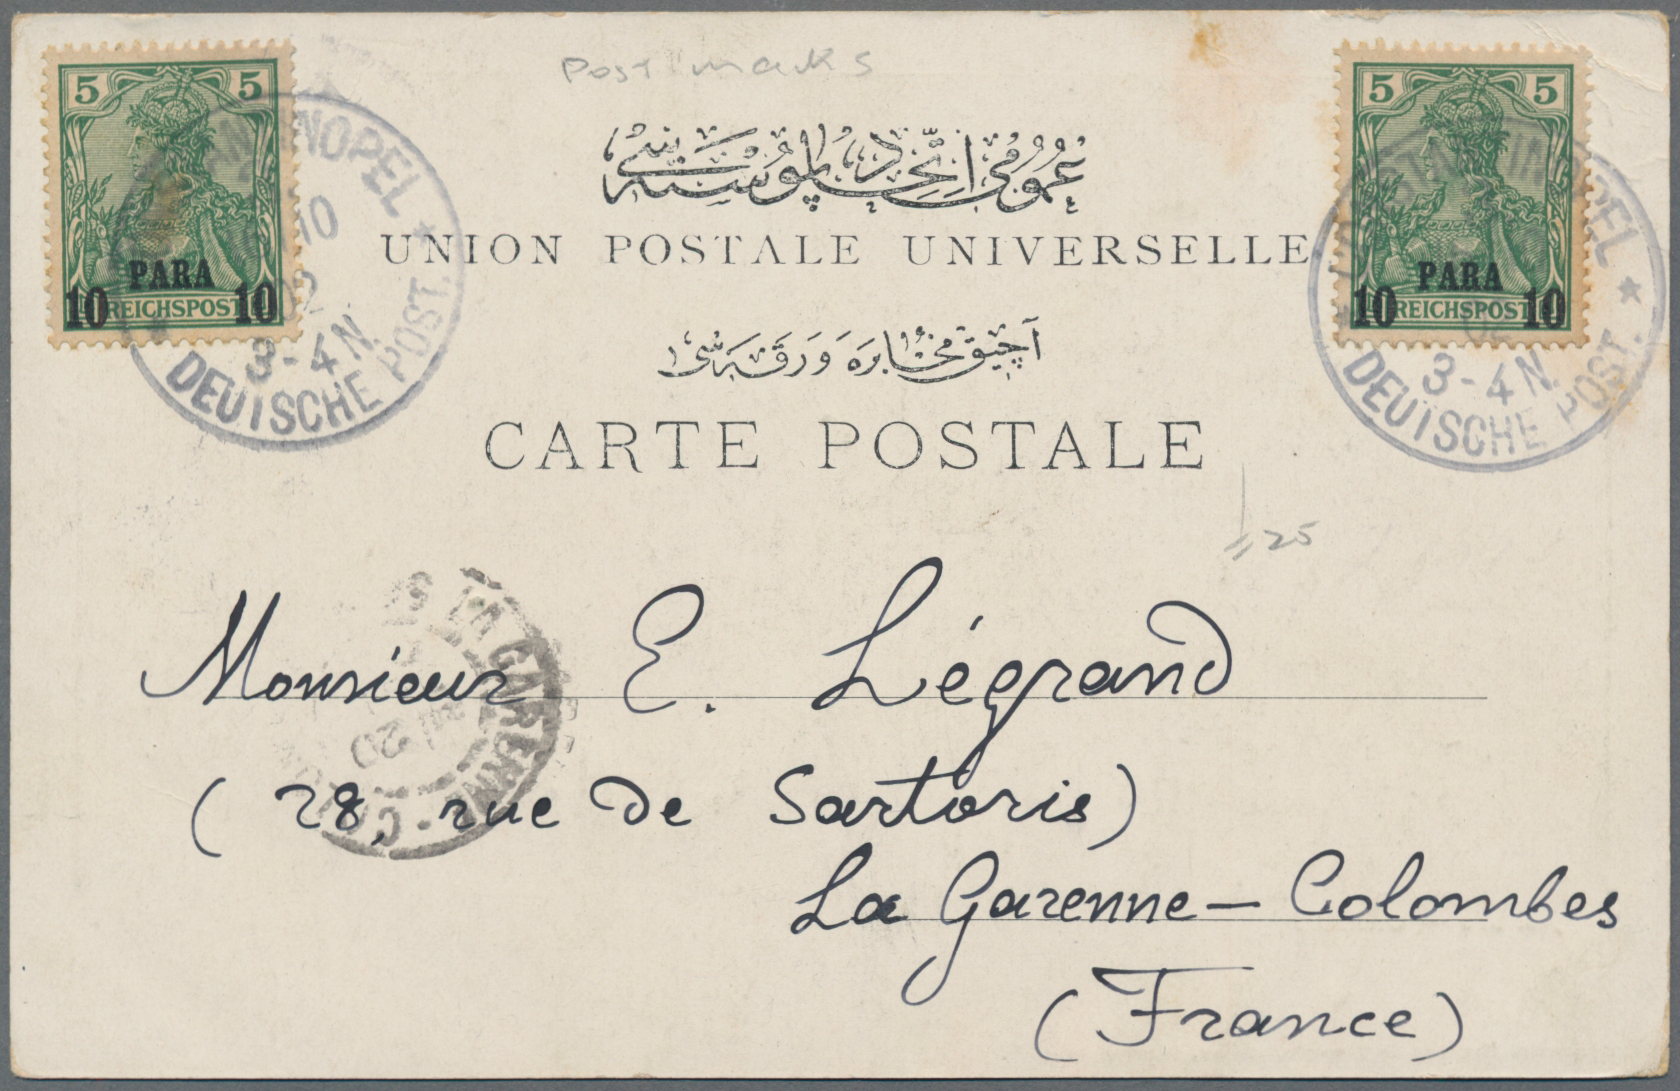 Post marks
5 5
PARA
10 10
REICHSPOST
NOPEL
10
02
3-4 N.
DEUTSCHE POST.
5 5
PARA
10 10
REICHSPOST
OPEL
3-4 N.
DEUTSCHE POST.
عمومی اتحاد پوسته سی
UNION POSTALE UNIVERSELLE
آچیق مخابره و ورقه سی
CARTE POSTALE
25
Monsieur E. Légrand
(28, rue de Sartoris)
La Garenne - Colombes
(France)
LA GARENNE-CO
20